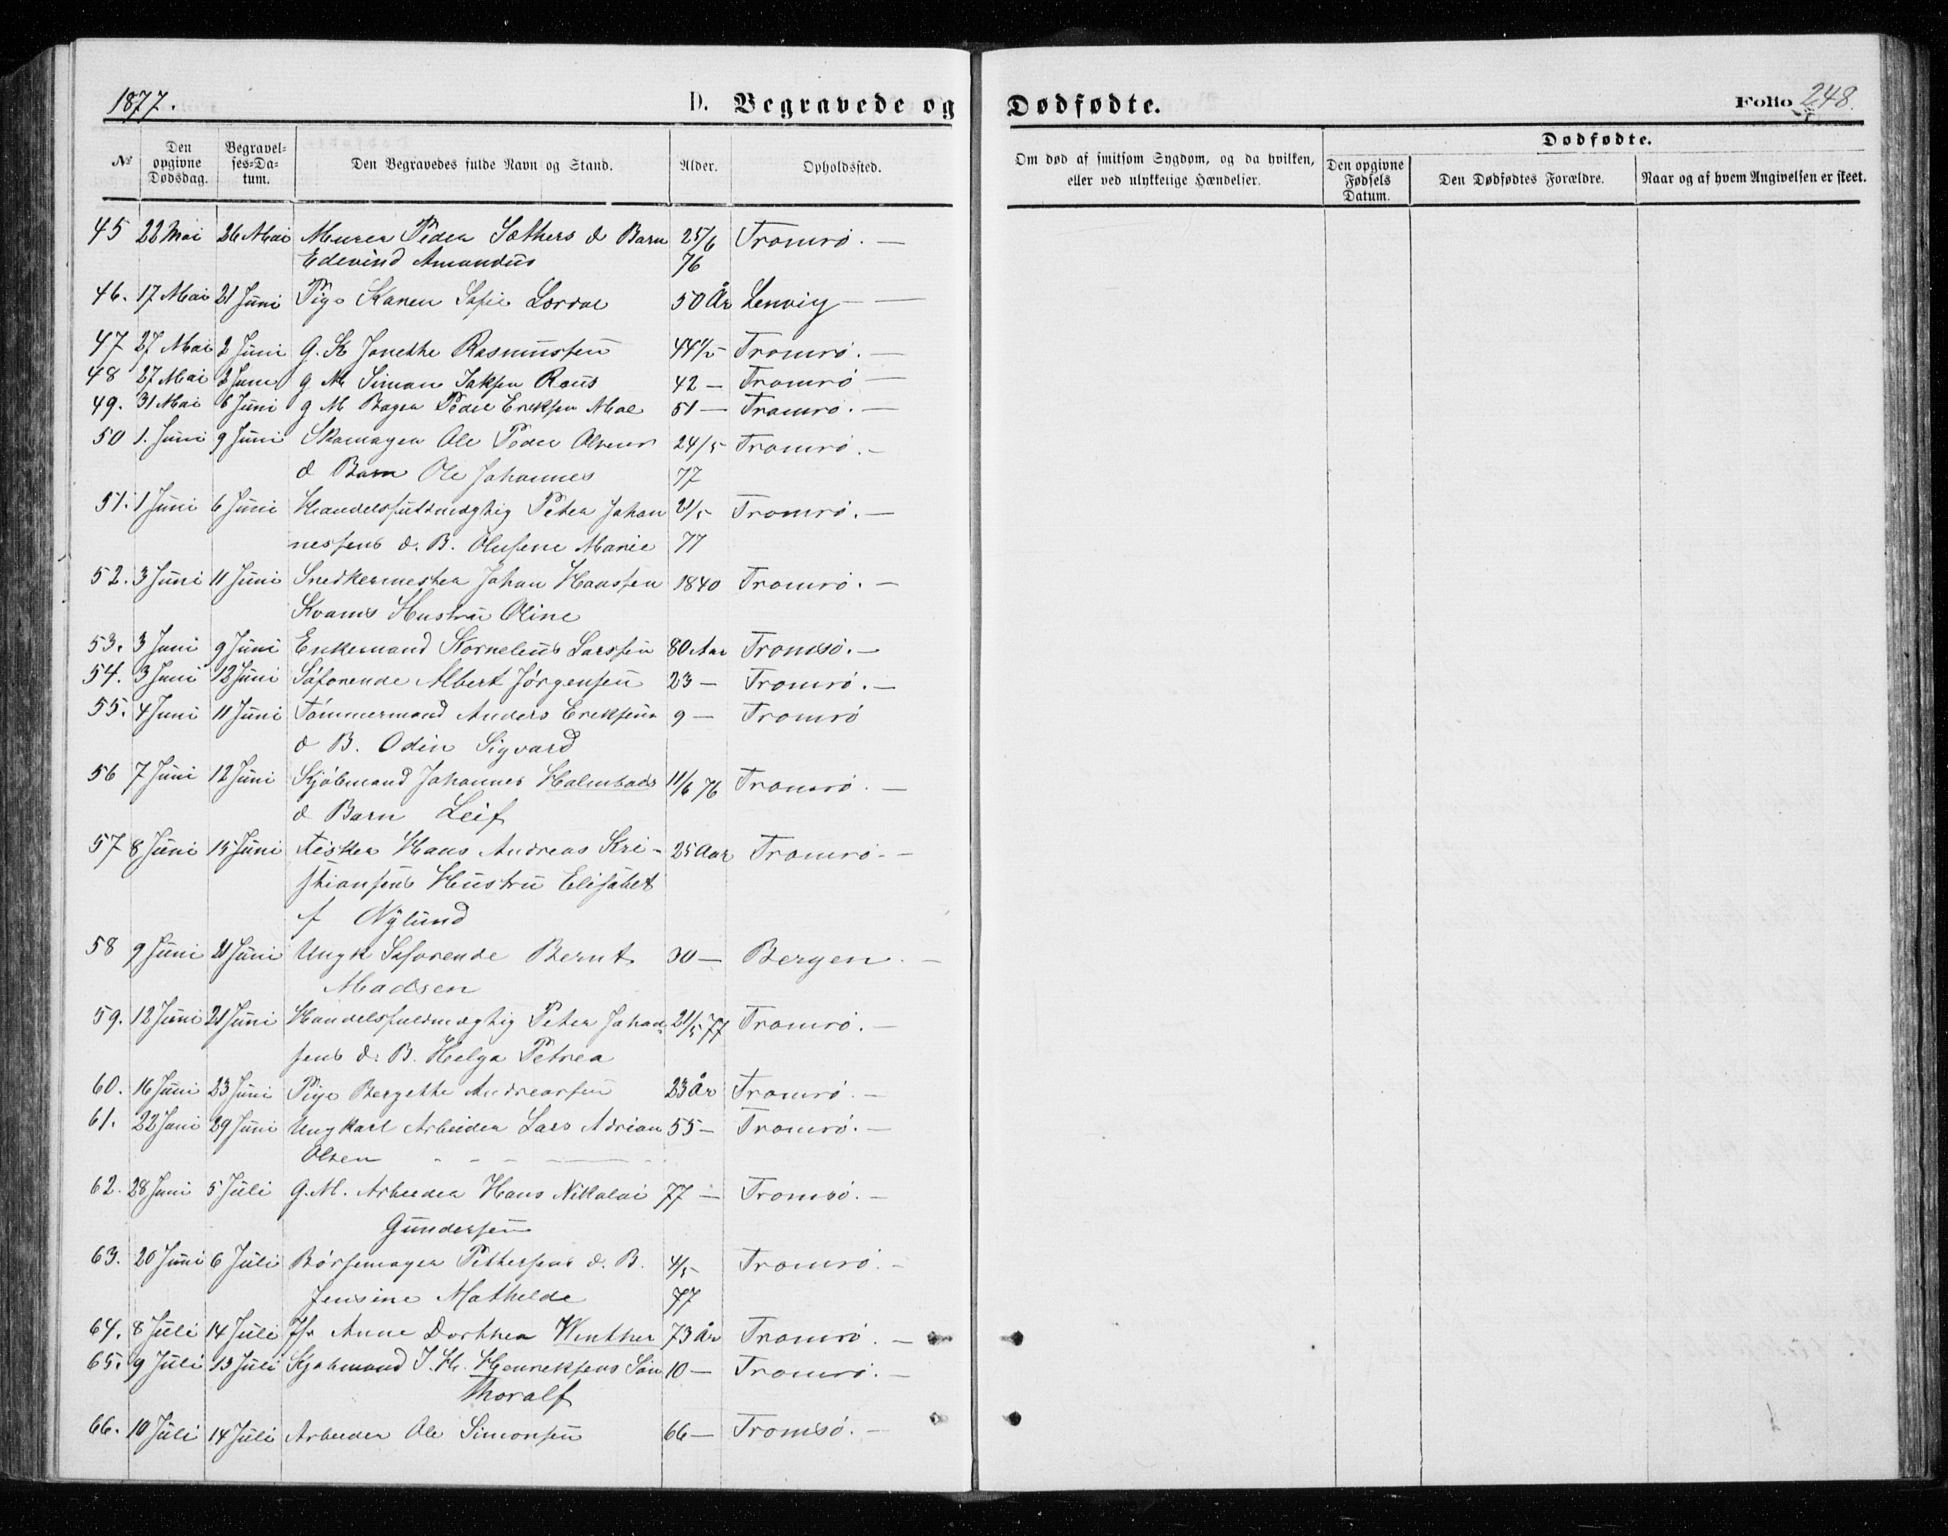 1877. D. Begravede og Dødfødte. Folio 248.
Dødfødte.
№ Den opgivne Dødsdag. Begravelses-Datum. Den Begravedes fulde Navn og Stand. Alder. Opholdssted. Om død af smitsom Sygdom, og da hvilken, eller ved ulykkelige Hændelser. Den opgivne Fødsels Datum. Den Dødfødtes Forældre. Naar og af hvem Angivelsen er skeet.
45 22 Mai 26 Mai Murer Peder Sæthers d Barn 25/6 Tromsø. —
Edevind Amandus 76
46. 17 Mai 21 Juni Pige Karen Sofie 50 År Lenvig — —
47 27 Mai 2 Juni G. K Janethe Rasmussen 44 Tromsø. —
48 27 Mai 2 Juni g M Simon Raus 42 — Tromsø —
49. 31 Mai 6 Juni g M Bager Peder Eriksen Moe 51 — Tromsø. —
50 1. Juni 9 Juni Skomager Ole Peder Olsens 24/5 Tromsø. —
d Barn Ole Johannes 77
51. 1 Juni 6 Juni Handelsfuldmægtig Peter Johan 21/5 Tromsø. —
nessens d. B. Olufine Marie 77
52. 3 Juni 11 Juni Snedkermester Johan Hanssen 1840 Tromsø. —
Kvams Hustru Oline
53. 3 Juni 9 Juni Enkemand Kornelius Larssen 80 Aar Tromsø. —
54. 3 Juni 12 Juni Søfarende Albert Jørgensen 23 — Tromsø. —
55. 4 Juni 11 Juni Tømmermand Anders Eriksens 9 — Tromsø
d B. Odin Sigvard
56 7 Juni 12 Juni Kjøbmand Johannes Holmboes 11/6 76 Tromsø. —
d Barn Leif
57 8 Juni 15 Juni Fisker Hans Andreas Kri- 25 Aar Tromsø. —
stiansens Hustru Elisabet
f Nylund
58 9 Juni 21 Juni Ungk Søfarende Bernt 30 — Bergen. —
Madsen
59. 12 Juni 21 Juni Handelsfuldmægtig Peter Johan- 21/5 77 Tromsø. —
sens d. B. Helga Petrea
60. 16 Juni 23 Juni Pige Bergette Andreassen 23 År Tromsø. —
61. 22 Juni 29 Juni Ungkarl Arbeider Lars Adrian 55 — Tromsø. —
Olsen
62. 28 Juni 5 Juli G. M. Arbeider Hans Nikolai 77 — Tromsø. —
Gundersen
63. 20 Juni 6 Juli Børsemager Pettersens d. B. 4/5 Tromsø. —
Jensine Mathilde 77
64. 8 Juli 14 Juli Jfr Anne Dorthea Winther 73 År Tromsø. —
65. 9 Juli 13 Juli Kjøbmand J. H. Henriksens Søn 10 — Tromsø. —
Thoralf
66. 10 Juli 14 Juli Arbeider Ole Simonsen 66 — Tromsø. —